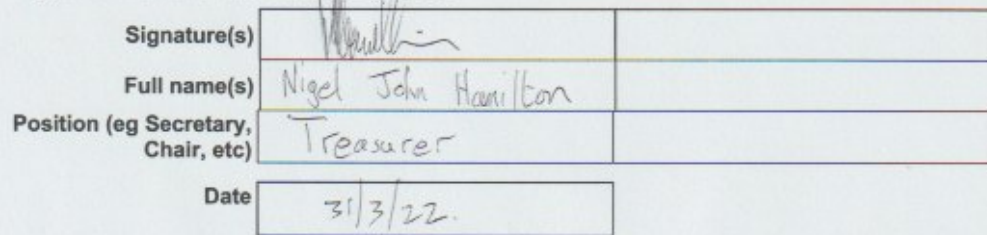 Signature(s)
Full name(s) Nigel John Hamilton
Position (eg Secretary, Chair, etc) Treasurer
Date 31/3/22.